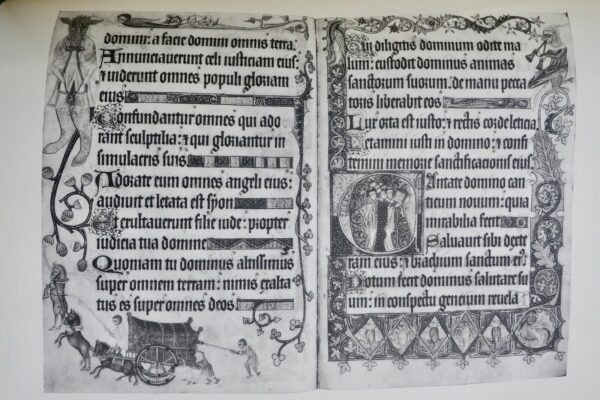 domini: a facie domini omnis terra.
Annunciaverunt celi iusticiam eius:
& viderunt omnes populi gloriam
eius
Confundantur omnes qui ado
rant sculptilia: & qui gloriantur in
simulacris suis
Adorate eum omnes angeli eius:
audivit et letata est syon
Et exultaverunt filie iude: propter
iudicia tua domine
Quoniam tu dominus altissimus
super omnem terram: nimis exalta
tus es super omnes deos.
Qui diligitis dominum odite ma
lum: custodit dominus animas
sanctorum suorum. de manu pecca
toris liberabit eos
Lux orta est iusto: & rectis corde leticia
Letamini iusti in domino: & confi
temini memorie sanctificacionis eius.
Cantate domino can
ticum novum: quia
mirabilia fecit
Salvavit sibi dexte
ram eius: & brachium sanctum
Notum fecit dominus salutare su
um: in conspectu gencium revela